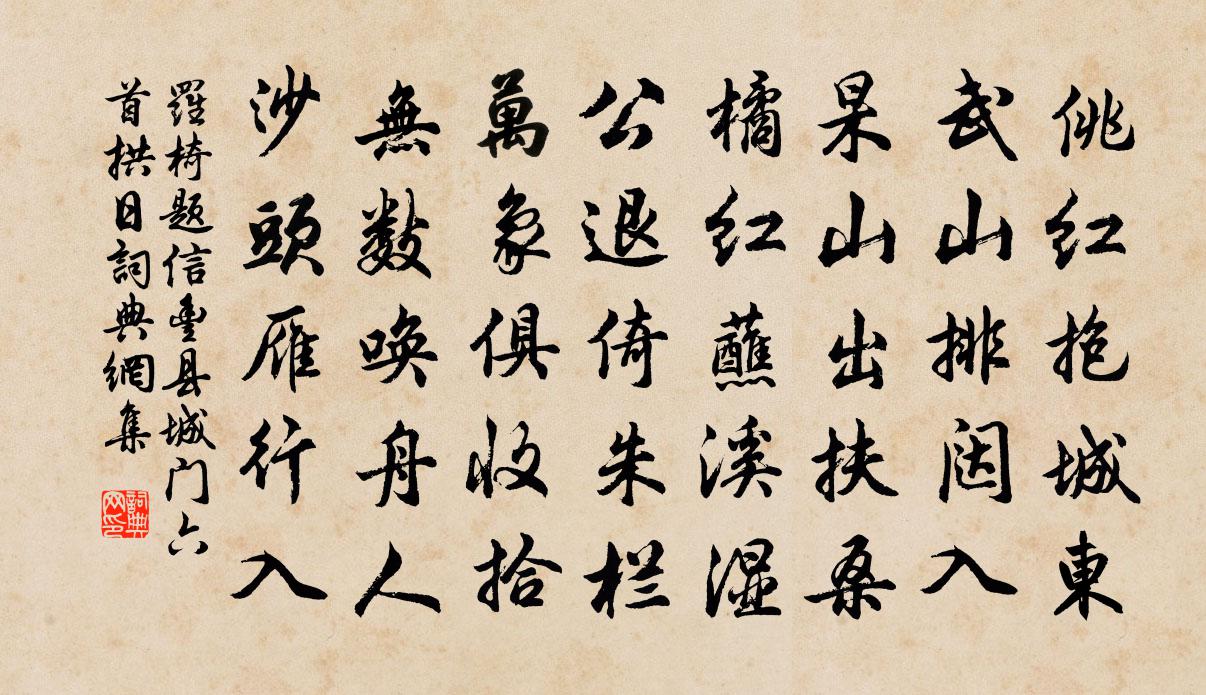 佻红抱城東
武山排闼入
杲山出扶桑
橘红蘸溪湿
公退倚朱栏
萬象俱收拾
無数唤舟人
沙頭雁行入
羅椅题信豊县城门六
首拱日詞典網集
詞典网印